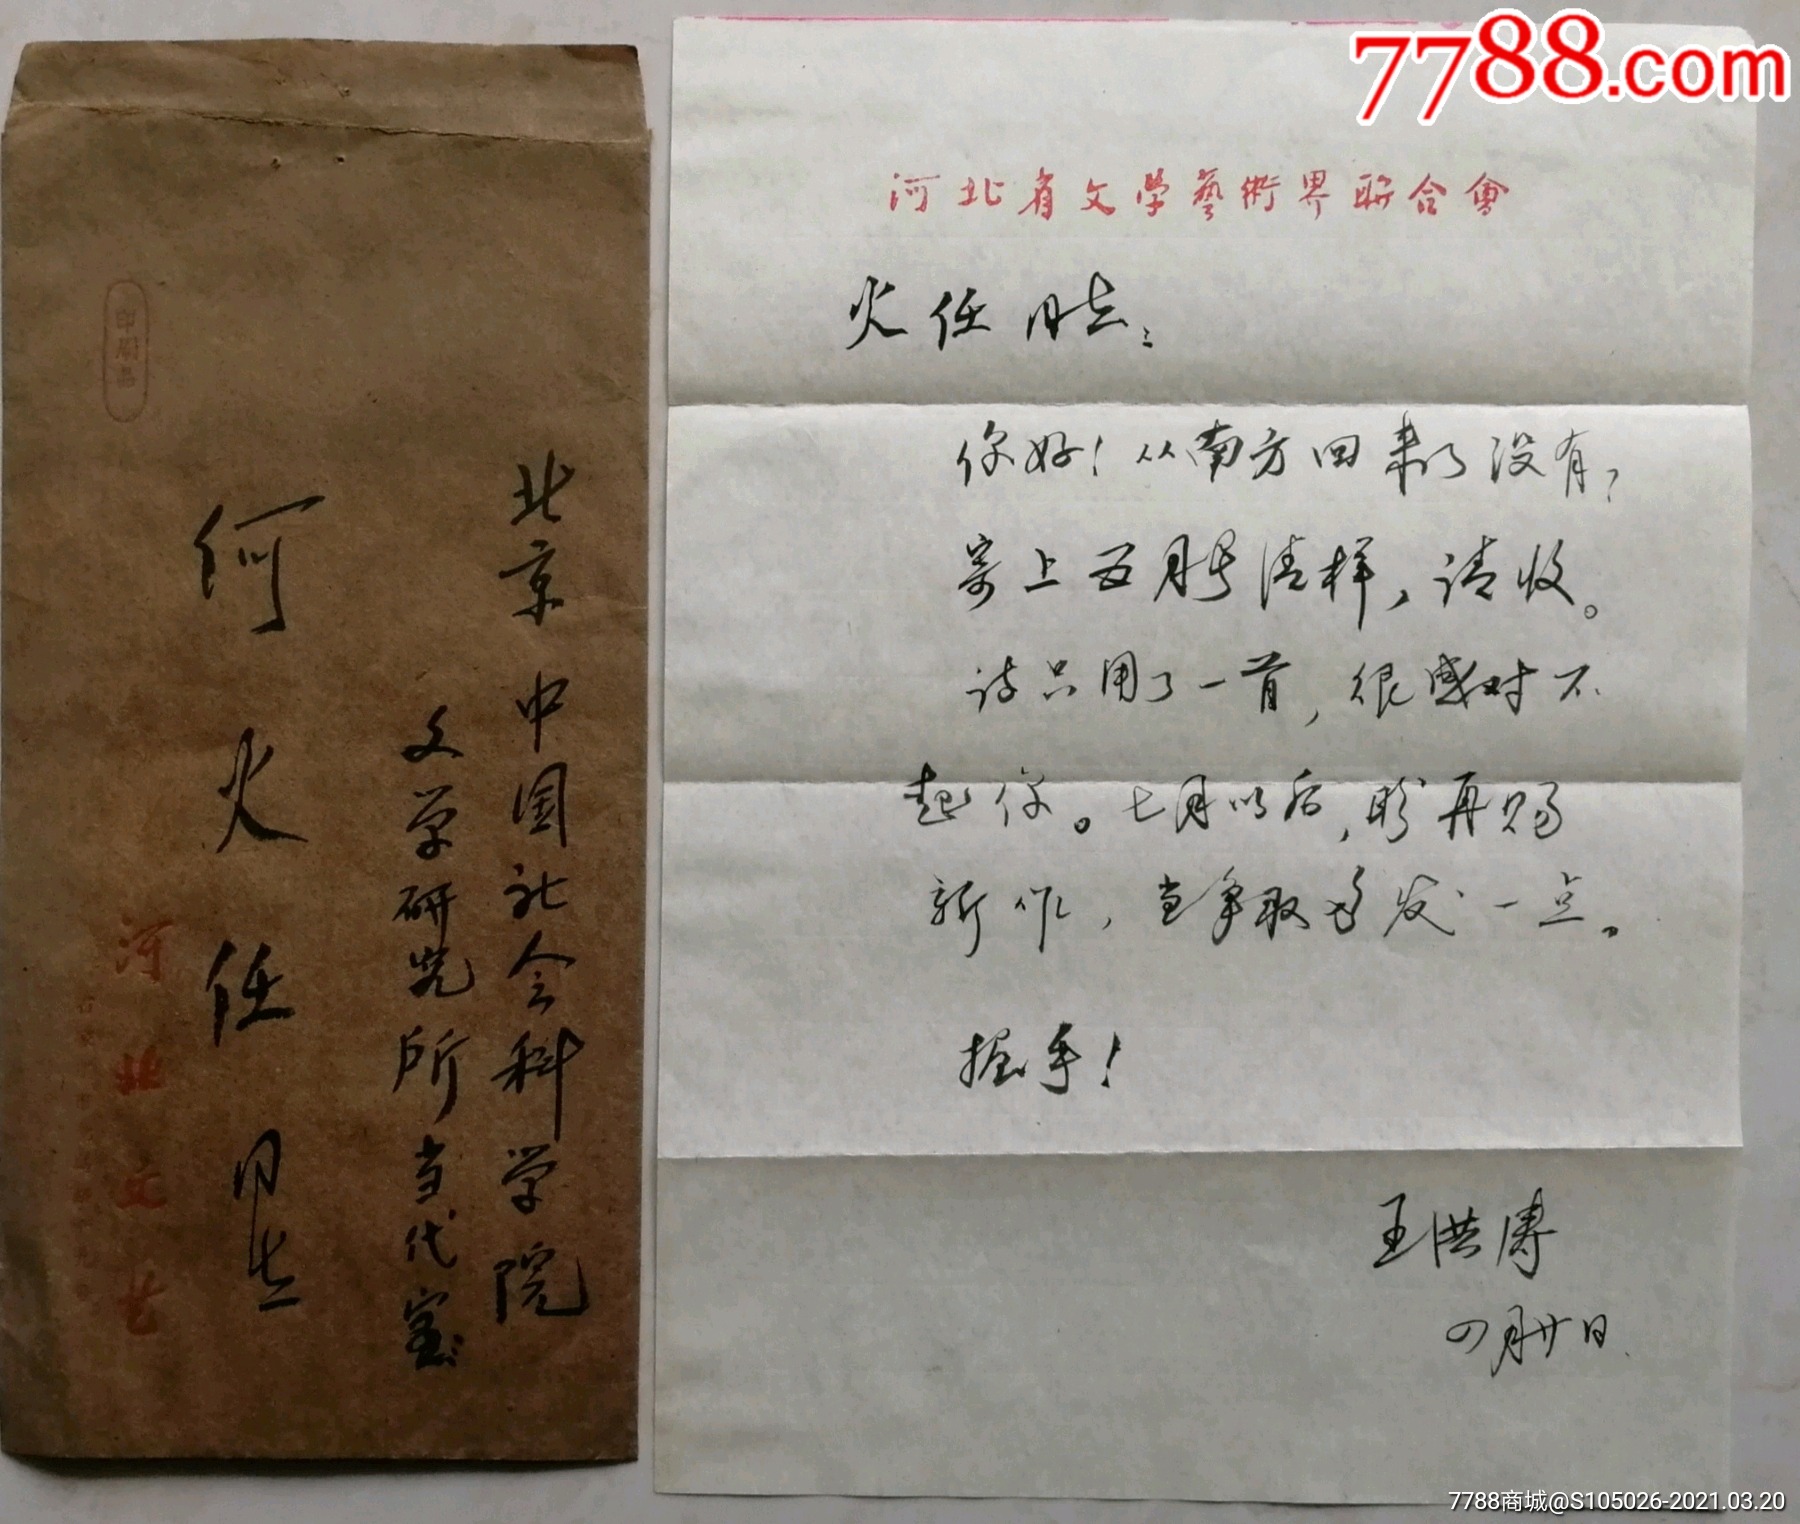 7788.com
印刷品
北京中国社会科学院
文学研究所当代室
何火任同志
河北文艺
河北省文學藝術界聯合會
火任同志：
你好！从南方回来了没有？
寄上五月号清样，请收。
诗只用了一首，很感对不
起你。七月以后，盼再赐
新作，当争取多发一点。
握手！
王洪涛
四月廿日
7788商城@S105026-2021.03.20